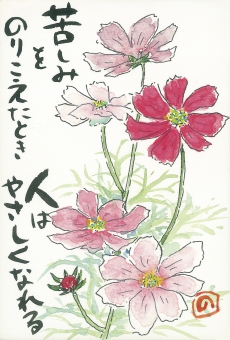 苦しみ
を
のりこえたとき
人は
やさしくなれる
の